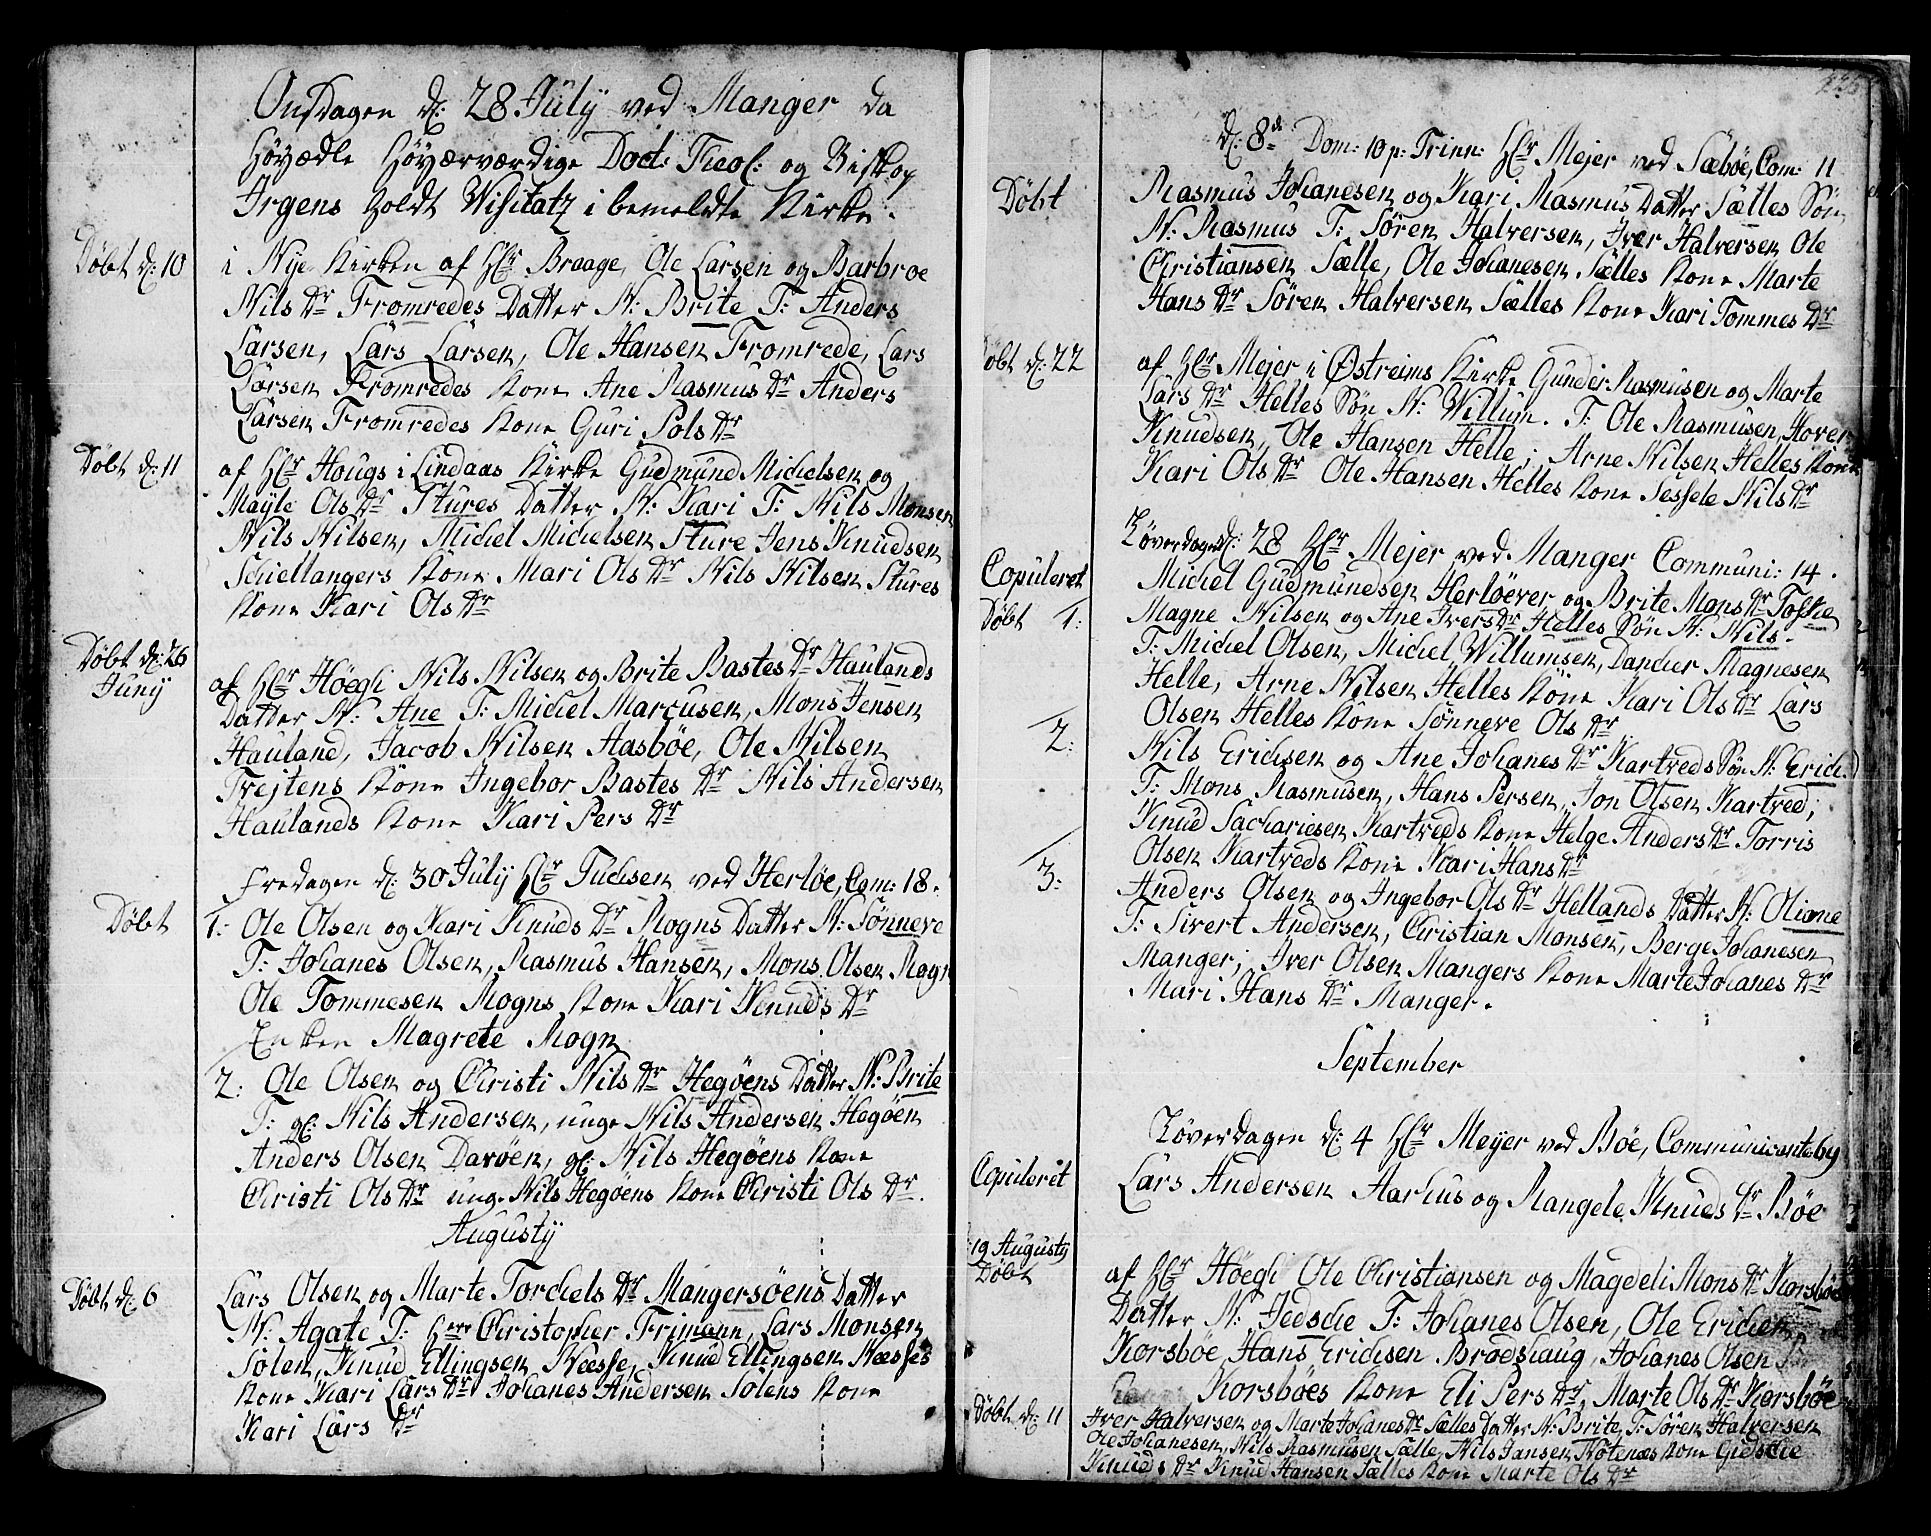 Onsdagen d: 28 July ved Manger da
Höyædle Höyærværdige Doct: Theol: og Biskop
Irgens holdt Wisitatz i bemeldte Kirke.
Døbt d: 10
i Nye Kirken af Hr Braage, Ole Larsen og Barbroe
Nils Dr Fromredes Datter N: Brite T: Anders
Larsen, Lars Larsen, Ole Hansen Fromrede, Lars
Larsen Fromredes Kone Ane Rasmus Dr Anders
Larsen Fromredes Kone Guri Pols Dr
Døbt d: 11
af Hr Hougs i Lindaas Kirke Gudmund Michelsen og
Mayle Ols Dr Stures Datter N: Kari T: Nils Monsen
Nils Nilsen, Michel Michelsen Sture Jens Knudsen
Schiellangers Kone Mari Ols Dr Nils Nilsen Stures
Kone Kari Ols Dr
Døbt d: 26
Juny
af Hr Höegh Nils Nilsen og Brite Bastes Dr Haulands
Datter N: Ane T: Michel Marcusen, Mons Jensen
Hauland, Jacob Nilsen Aasböe, Ole Nilsen
Trejtens Kone Ingebor Bastes Dr Nils Andersen
Haulands Kone Kari Pers Dr
Fredagen d: 30 July Hr Tuchsen ved Herløe, Com: 18.
Døbt
1: Ole Olsen og Kari Knuds Dr Rogns Datter N: Sønneve
T: Johanes Olsen, Rasmus Hansen, Mons Olsen Rogn
Ole Tommesen Rogns Kone Kari Knuds Dr
Enken Magrete Rogn
2: Ole Olsen og Christi Nils Dr Hegöens Datter N: Brite
T: gl: Nils Andersen, unge Nils Andersen Hegöen
Anders Olsen Davöen, gl: Nils Hegöens Kone
Christi Ols Dr unge Nils Hegöens Kone Christi Ols Dr.
Augusty
Døbt d: 6
Lars Olsen og Marte Torchels Dr Mangersöens Datter
N: Agate T: Herr Christopher Frimann, Lars Monsen
Solen, Knud Ellingsen Næsse, Knud Ellingsen Næsses
Kone Kari Lars Dr Johanes Andersen Solens Kone
Kari Lars Dr
d: 8de Dom: 10 p: Trinn: Hr Mejer ved Sæböe, Com: 11
Døbt
Rasmus Johanesen og Kari Rasmus Datter Sælles Søn
N: Rasmus T: Sören Halversen, Iver Halversen Ole
Christiansen Sælle, Ole Johanesen Sælles Kone Marte
Hans Dr Sören Halversen Sælles Kone Kari Tommes Dr
Døbt d: 22
af Hr Mejer i Østreims Kirke Gunder Rasmusen og Marte
Lars Dr Helles Søn N: Willum. T: Ole Rasmusen, Hover
Knudsen, Ole Hansen Helle, Arne Nilsen Helles Kone
Kari Ols Dr Ole Hansen Helles Kone Sessele Nils Dr
Løverdagen d: 28 Hr Mejer ved Manger Communi: 14.
Copuleret
Michel Gudmundsen Herlöever og Brite Mons Dr Toskie
Døbt 1:
Magne Nilsen og Ane Ivers Dr Helles Søn N: Nils.
T: Michel Olsen, Michel Willumsen, Dancher Magnesen
Helle, Arne Nilsen Helles Kone Kari Ols Dr Lars
Olsen Helles Kone Sønneve Ols Dr
2:
Nils Erichsen og Ane Johanes Dr Kartveds Søn N: Erich
T: Mons Rasmusen, Hans Persen, Jon Olsen Kartved,
Knud Sachariesen Kartveds Kone Helge Anders Dr Torris
Olsen Kartveds Kone Kari Hans Dr
3:
Anders Olsen og Ingebor Ols Dr Hellands Datter N: Oliane
T: Sivert Andersen, Christian Monsen, Berge Johanesen
Manger, Iver Olsen Mangers Kone Marte Johanes Dr
Mari Hans Dr Manger.
September
Løverdagen d: 4 Hr Meyer ved Böe, Communicante 69
Copuleret
Lars Andersen Aarhus og Rangele Knuds Dr Böe
19 Augusty
Døbt
af Hr Höegh Ole Christiansen og Magdeli Mons Dr Korsböe
Datter N: Jedsche T: Johanes Olsen, Ole Erichsen
Korsböe, Hans Erichsen Brodshaug, Johanes Olsen
Korsböes Kone Eli Pers Dr, Marte Ols Dr Korsböe
Døbt d: 11
Iver Halversen og Marte Johanes Dr Sælles Datter N: Brite, T: Sören Halversen
Ole Johanesen, Nils Rasmusen Sælle, Nils Jansen Nötenæs Kone Gidsche
Knuds Dr Knud Hansen Sælles Kone Marte Ols Dr